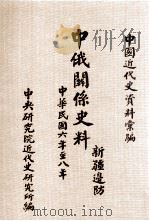 中國近代史資料彙編
中俄關係史料
新疆邊防
中華民國六年至八年
中央研究院近代史研究所編